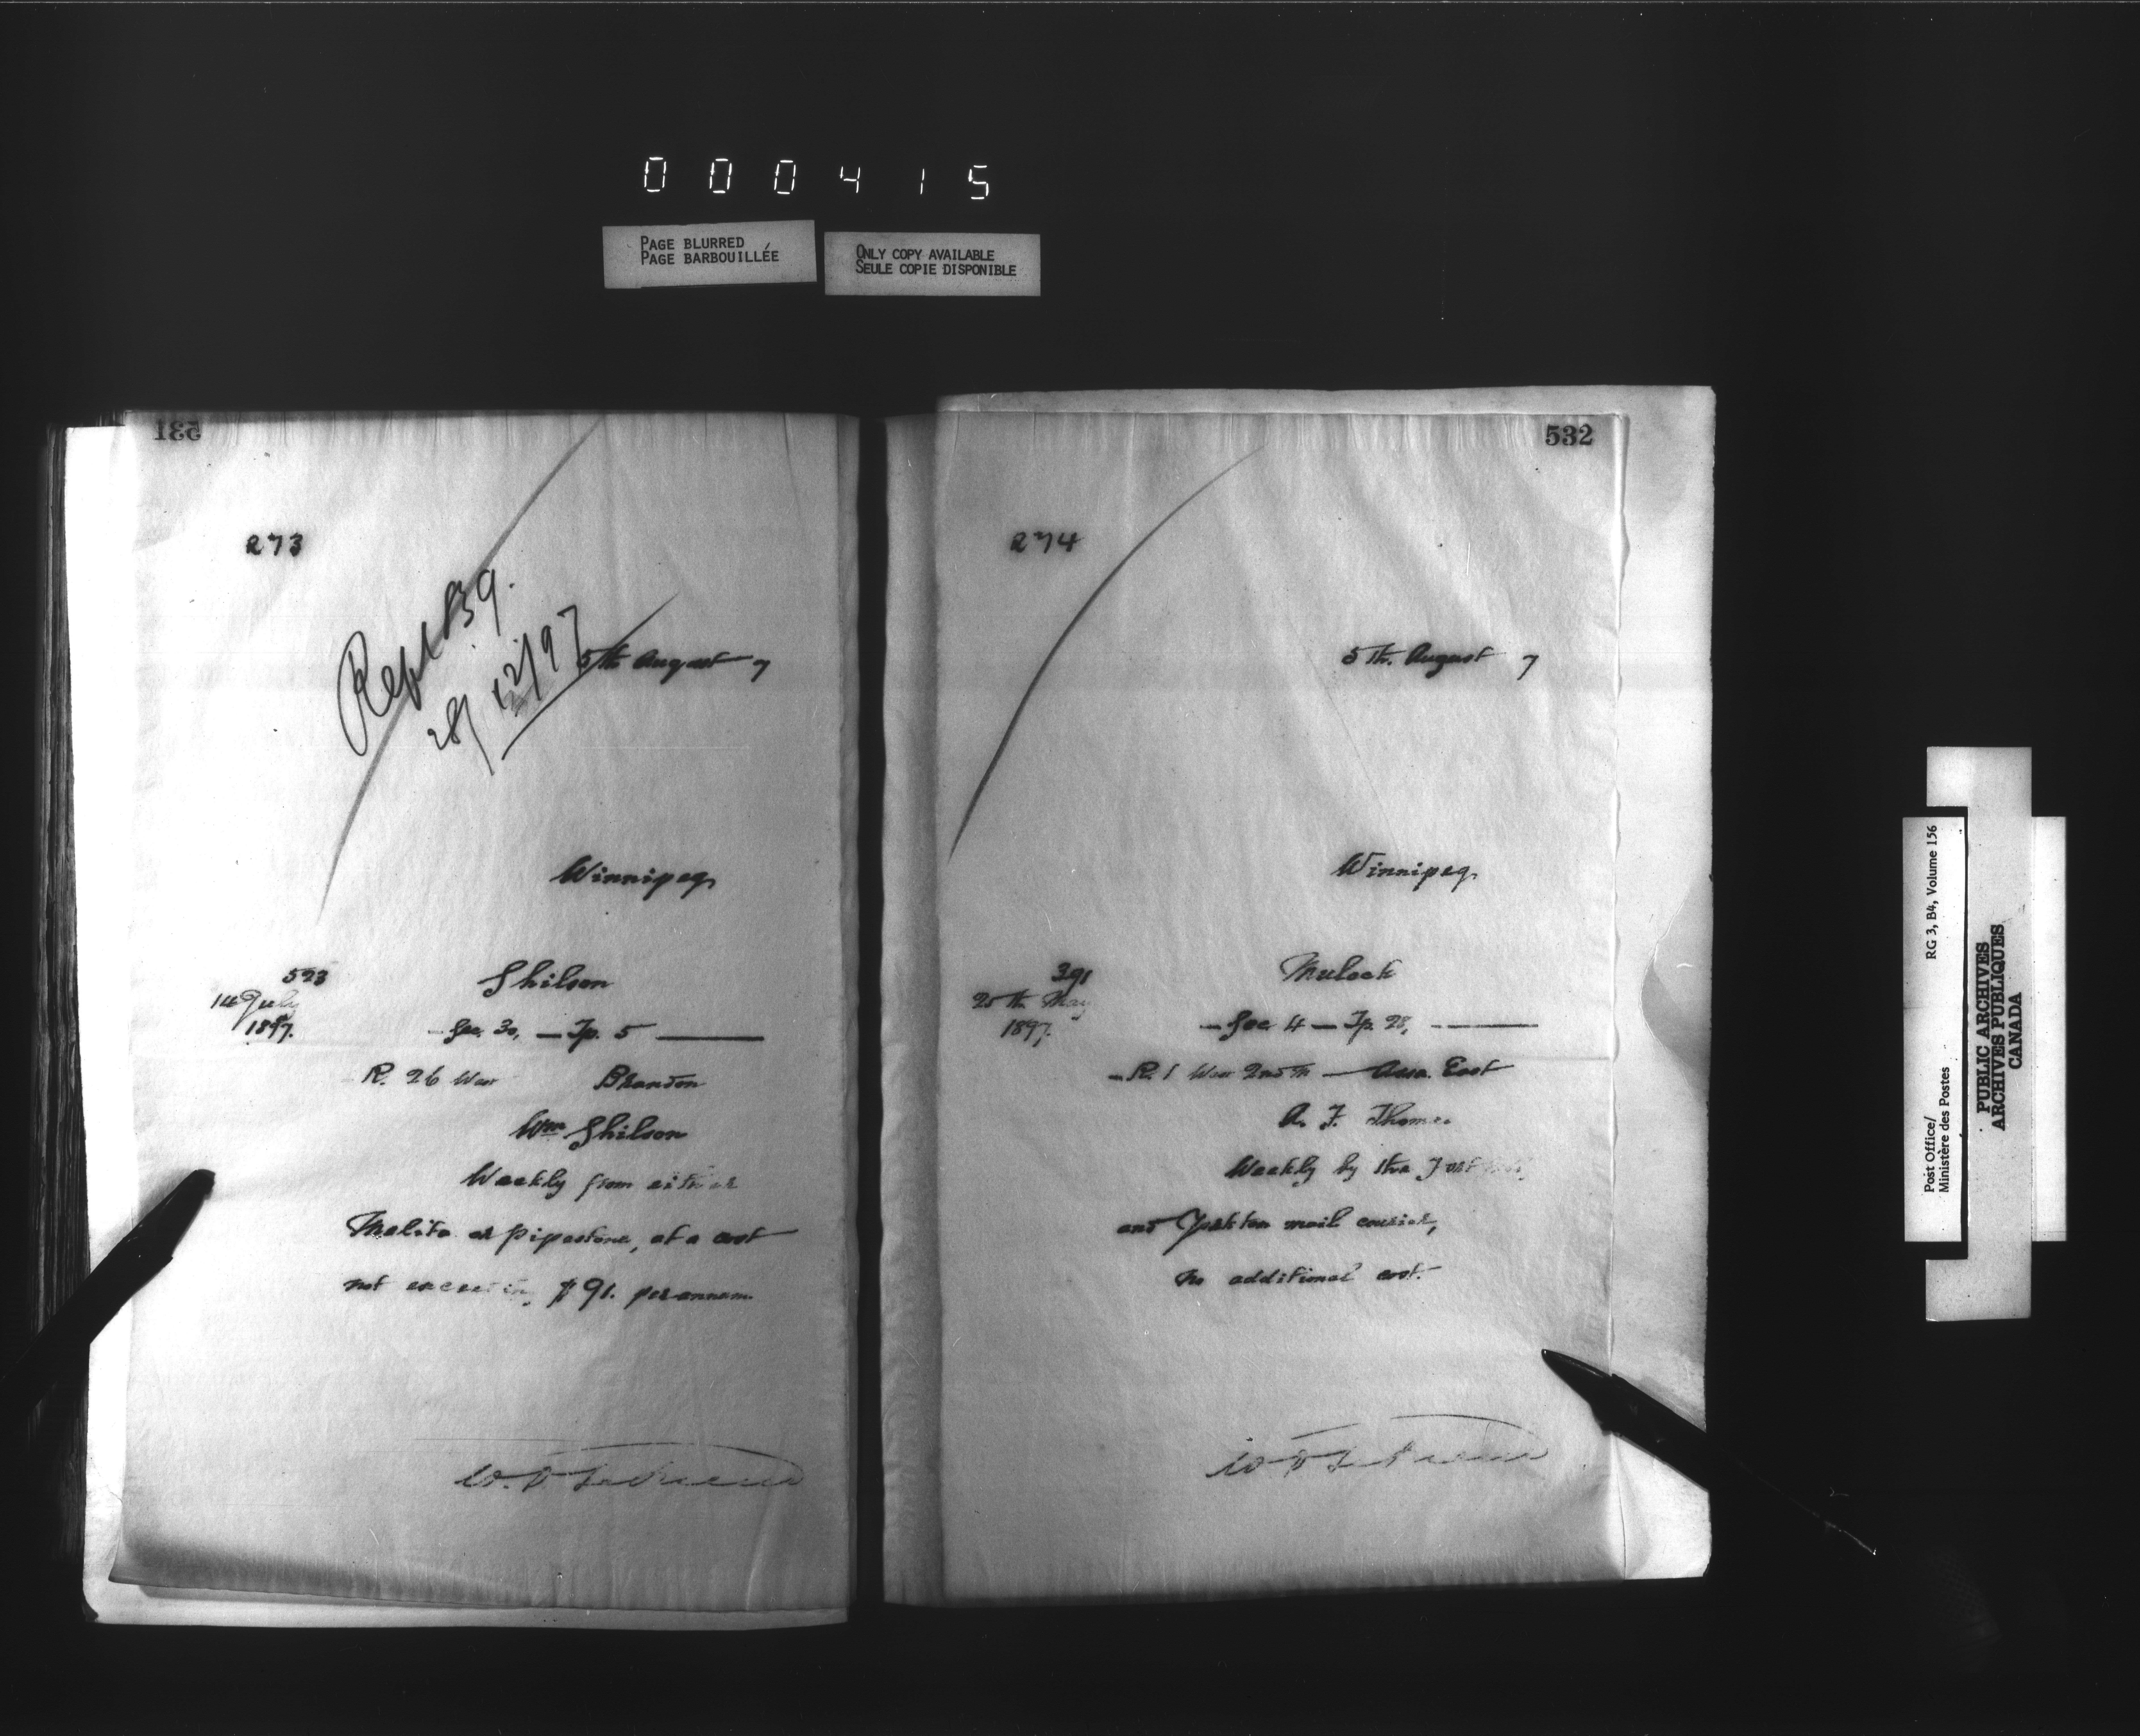 000415
PAGE BLURRED
PAGE BARBOUILLÉE
ONLY COPY AVAILABLE
SEULE COPIE DISPONIBLE
531
273
Rept B9.
28/12/97
5th August 7
Winnipeg
523
14 July
1897.
Shilson
- Sec. 30, - Tp. 5 -
R. 26 West Brandon
Wm Shilson
Weekly from either
Melita or Pipestone, at a cost
not exceeding $91. per annum.
532
274
5th. August 7
Winnipeg.
391
25th May
1897.
Mulock
- Sec 4 - Tp. 28, -
- R. 1 West 2nd M - Assa. East
A. F. Thomas
Weekly by the Fort
and Yorkton mail courier,
no additional cost.
Post Office/ RG 3, B4, Volume 156
Ministère des Postes
PUBLIC ARCHIVES
ARCHIVES PUBLIQUES
CANADA